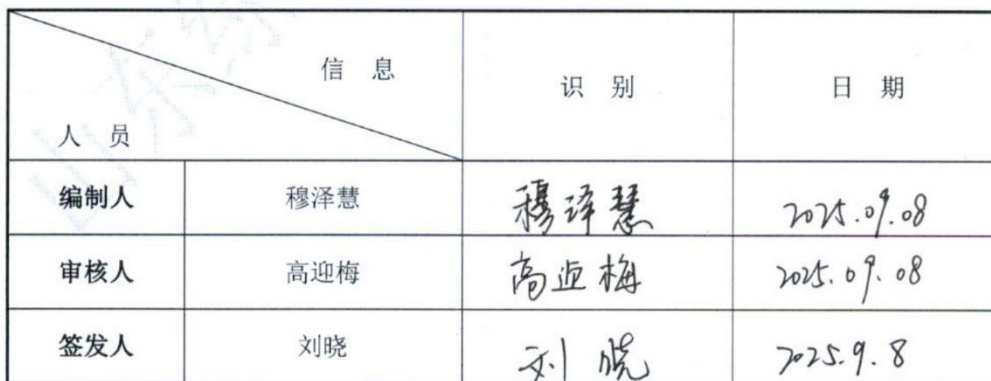 信 息
人 员
识 别
日 期
编制人 穆泽慧 穆泽慧 2025.09.08
审核人 高迎梅 高迎梅 2025.09.08
签发人 刘晓 刘晓 2025.9.8